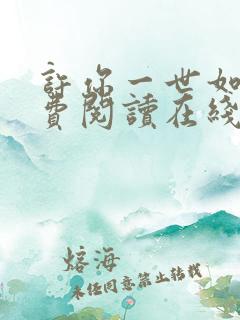 許你一世如
費閱讀在綫
熔海
未经同意禁止转载